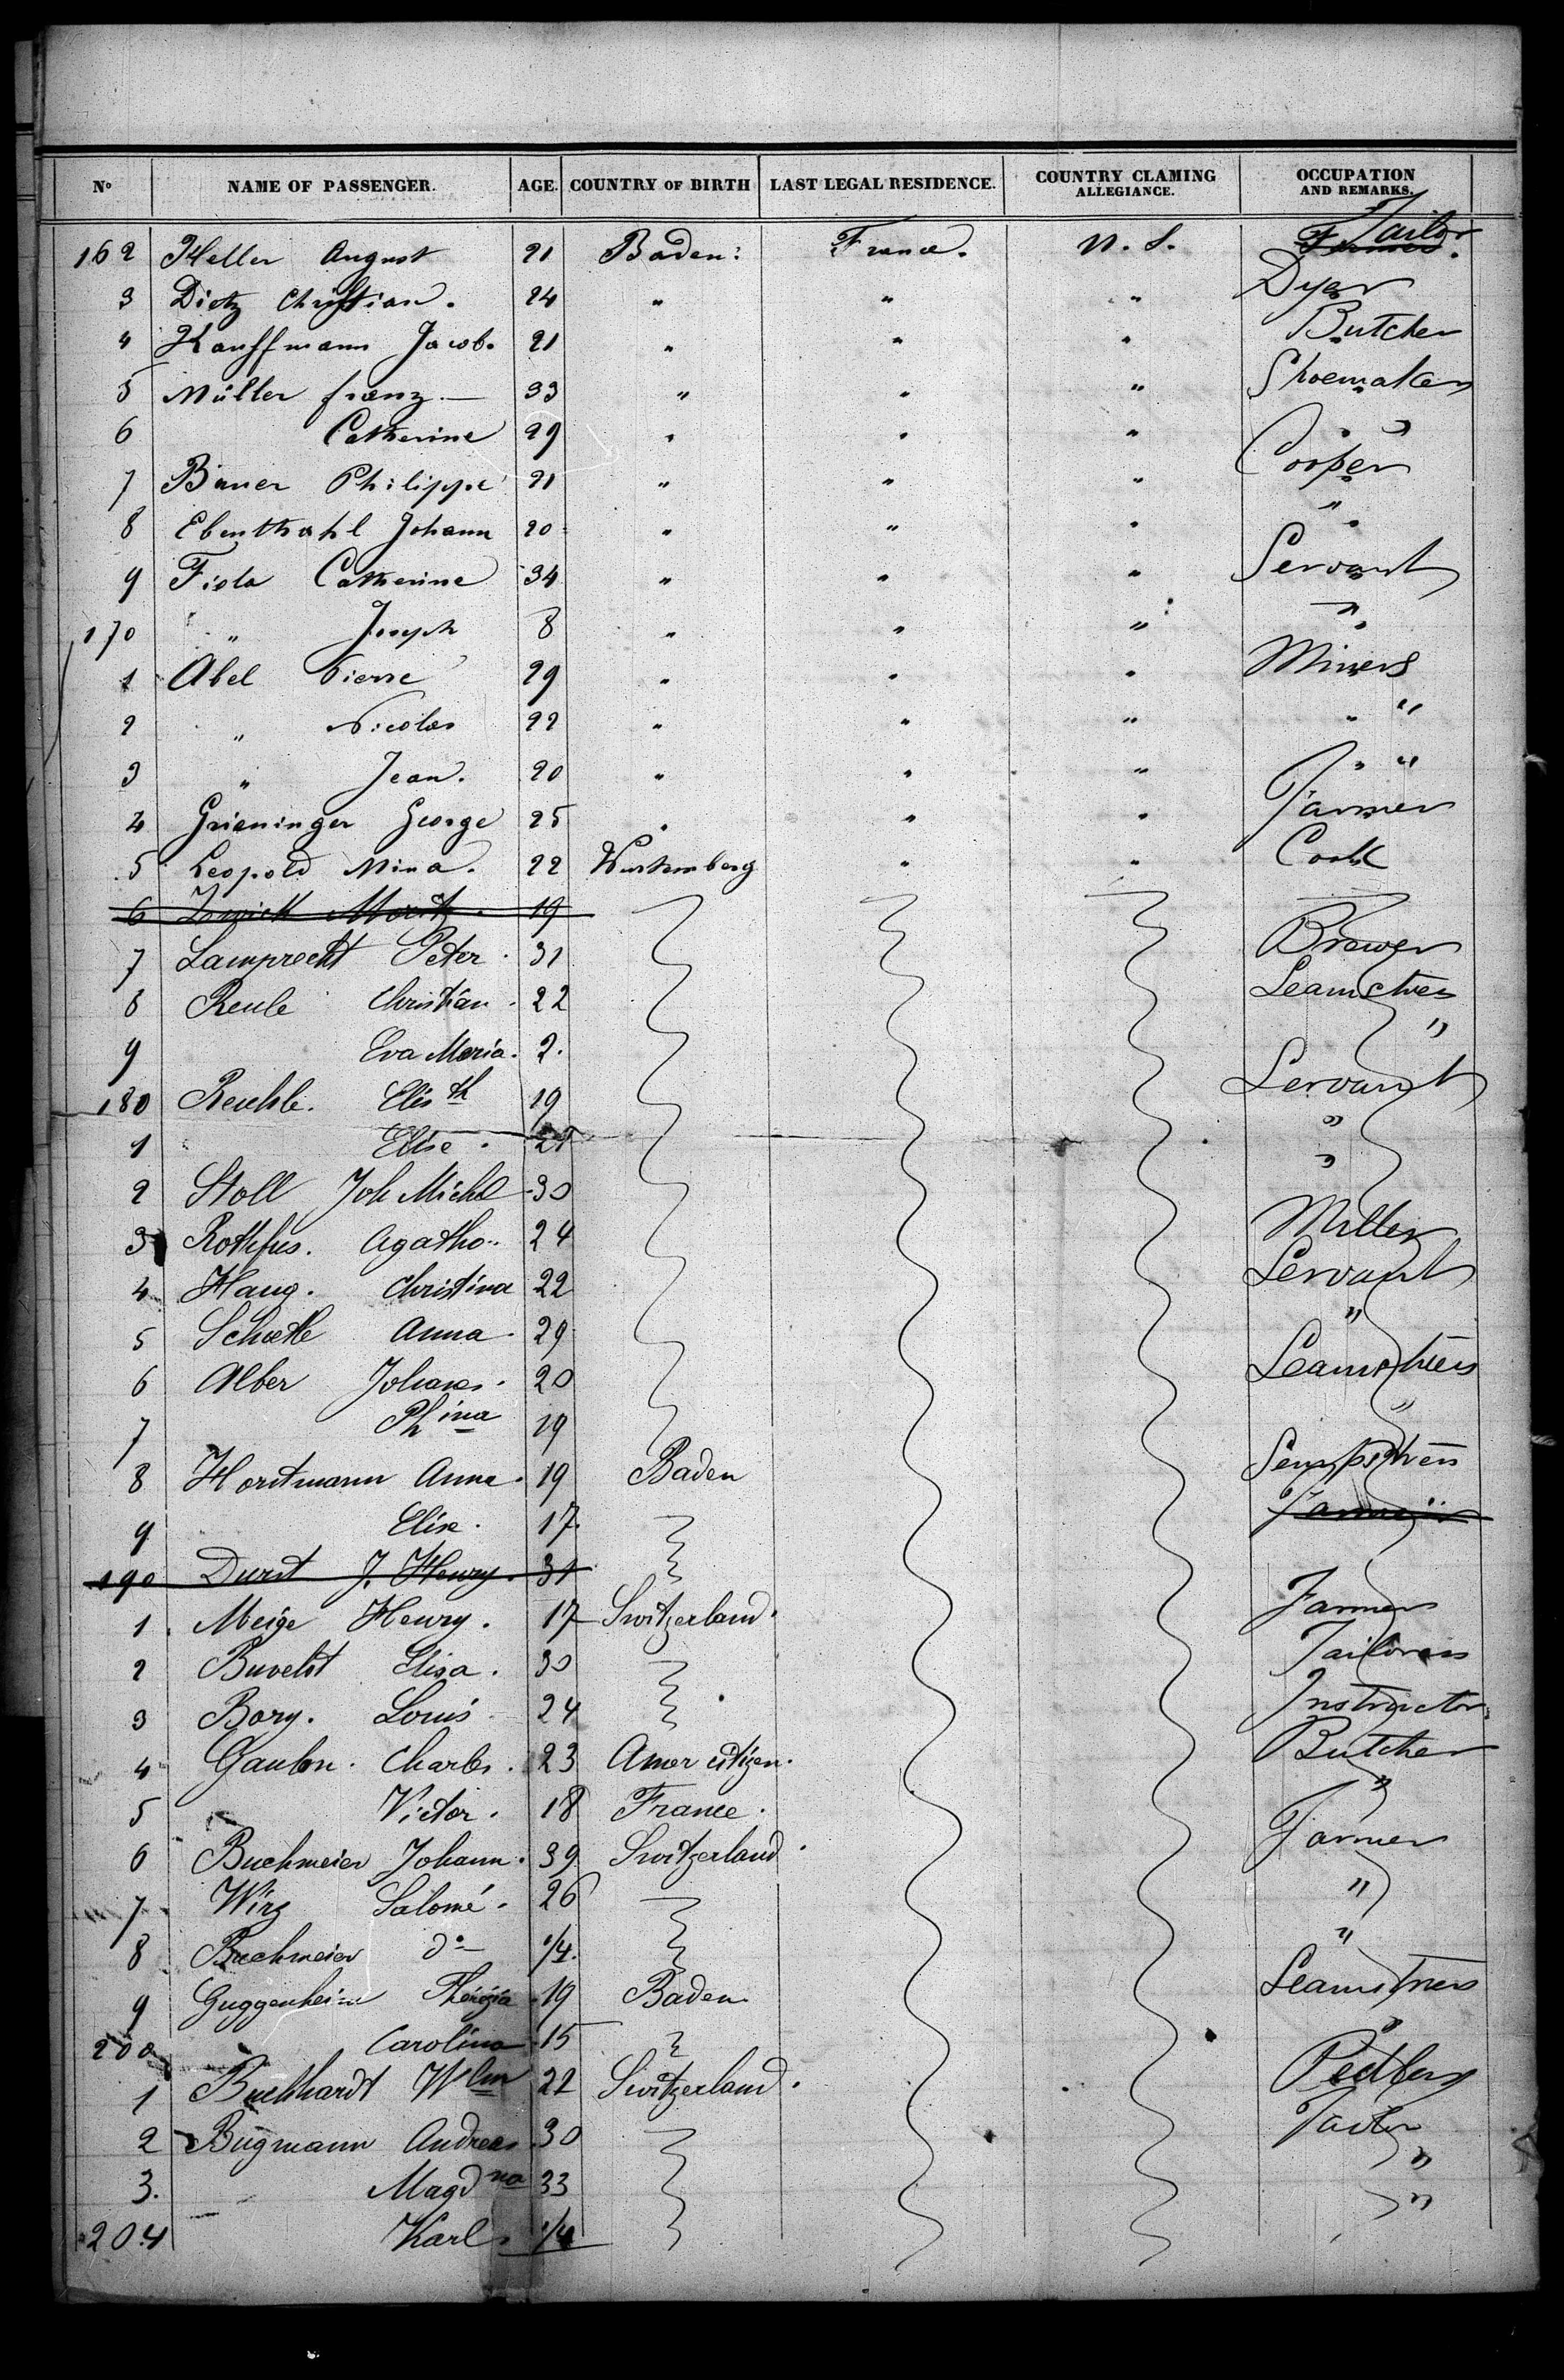 No NAME OF PASSENGER. AGE. COUNTRY OF BIRTH LAST LEGAL RESIDENCE. COUNTRY CLAMING ALLEGIANCE. OCCUPATION AND REMARKS.
162 Heller August 21 Baden: France. U. S. Farmer. Tailor
3 Dietz Christian. 24 " " " Dyer
4 Kauffmann Jacob. 21 " " " Butcher
5 Müller franz — 33 " " " Shoemaker
6 Catherine 29 " " " " "
7 Bauer Philippe 21 " " " Cooper
8 Ebenthahl Johann 20 " " " "
9 Fiola Catherine 34 " " " Servant
170 " Joseph 8 " " " "
1 Abel Pierre 29 " " " Miners
2 " Nicolas 22 " " " " "
3 " Jean. 20 " " " " "
4 Grieninger George 25 " " " Farmer
5 Leopold Mina. 22 Wurtemberg " " Cook
6 Moritz. 19
7 Lamprecht Peter. 31 Brewer
8 Reule Christian. 22 Seamstres
9 Eva Maria. 2. "
180 Reuhle. Elisth 19 Servant
1 Elise. 21 "
2 Stoll Joh Michl 30 "
3 Rothfus. Agatha. 24 Miller
4 Haug. Christina 22 Servant
5 Schoetle Anna. 29 "
6 Alber Johanes. 20 Seamstress
7 Phina 19 "
8 Horstmann Anna. 19 Baden
9 Elise. 17.
190 Durst J. Henry. 31
1 Meige Henry. 17 Switzerland. Farmer
2 Buvelst Elisa. 30 Tailoress
3 Bory. Louis 24 Instructor.
4 Gaulon. Charles. 23 Amer citizen. Butcher
5 Victor. 18 France. "
6 Buchmeier Johann. 39 Switzerland. Farmer
7 Wirz Salomé. 26 "
8 Buchmeier do 1/4. "
9 Guggenheim Thérésia 19 Baden Seamstress
200 Carolina 15 "
1 Buchhardt Wlm 22 Switzerland. Pedler
2 Bugmann Andreas 30 Tailor
3. Magdna 33 "
204 Karl. 1/4 "